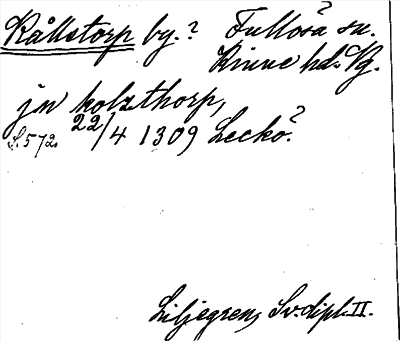 Kållstorp by.? Fullösa sn.?
Kinne hd. Vg.
jn kolzthorp,
S. 572. 22/4 1309 Leckö?
Liljegren, Sv. dipl. II.